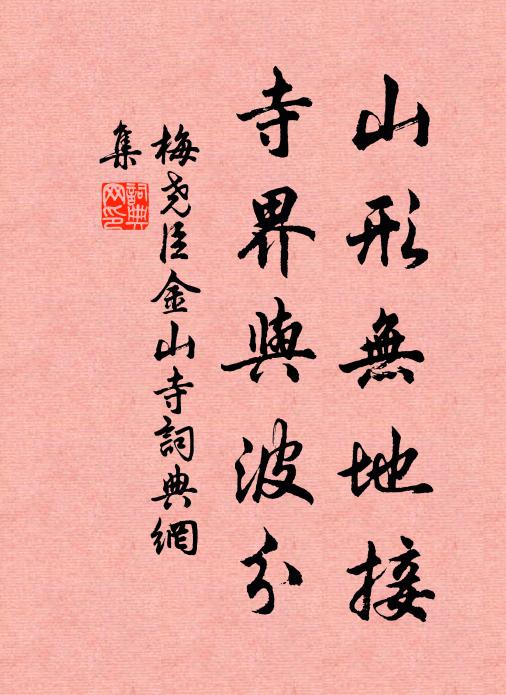 山形無地接
寺界與波分
梅堯臣金山寺詞典網
集
詞典網印